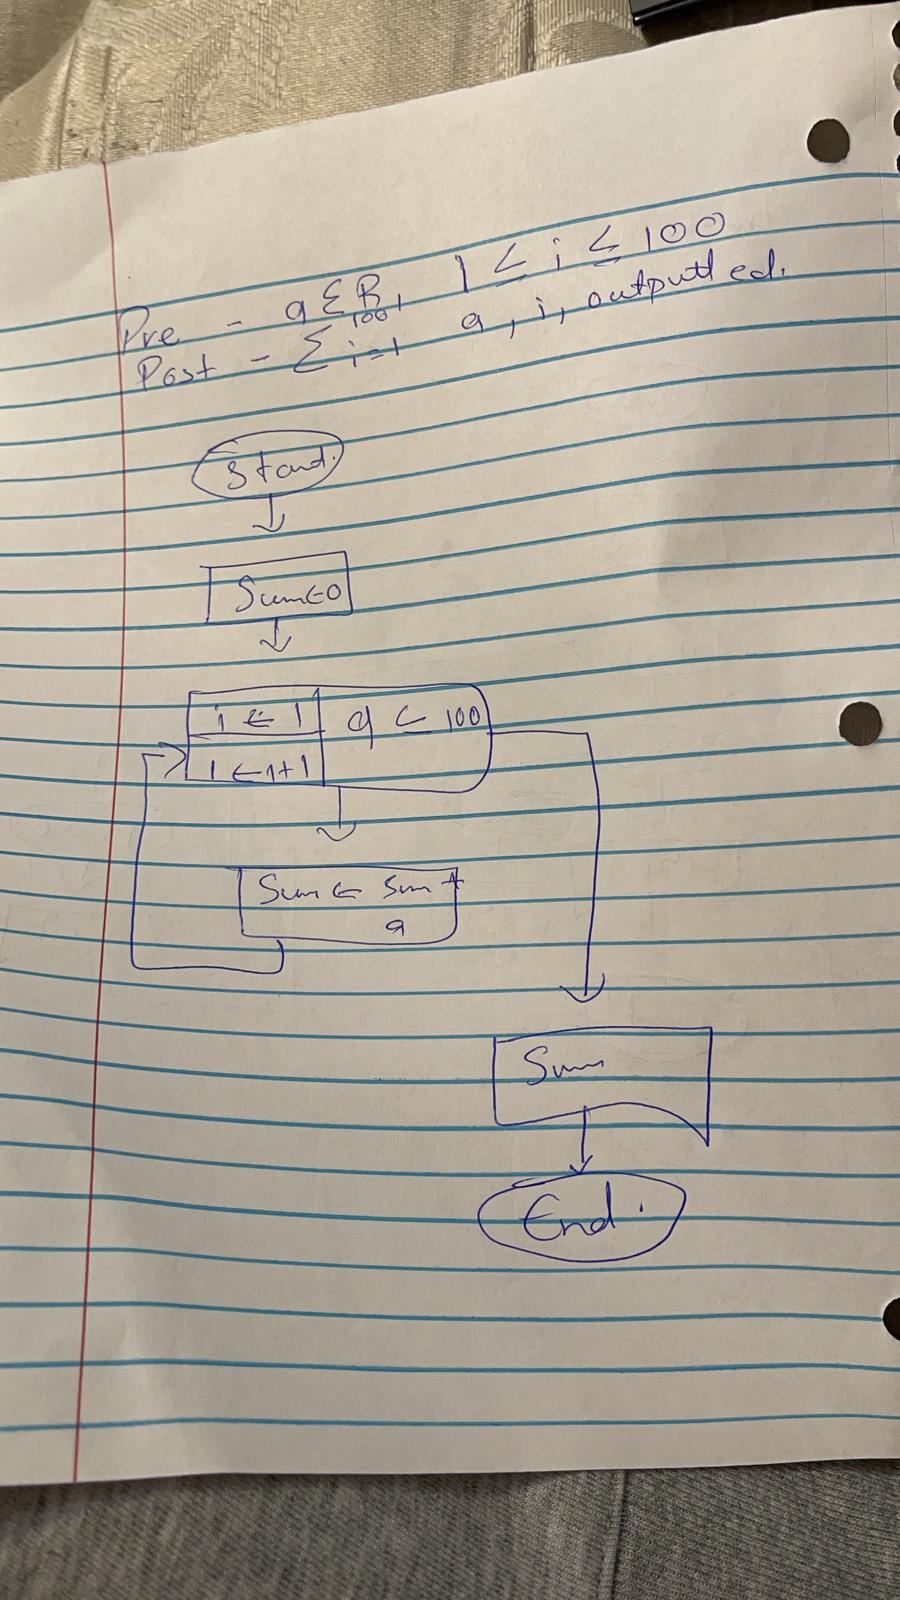 Pre - a ∈ R, 1 ≤ i ≤ 100
Post - ∑ 100 i=1 a, i, outputted.
Start.
Sum←0
i ← 1
a ≤ 100
i ←1+1
Sum ← Sum +
a
Sum
End.